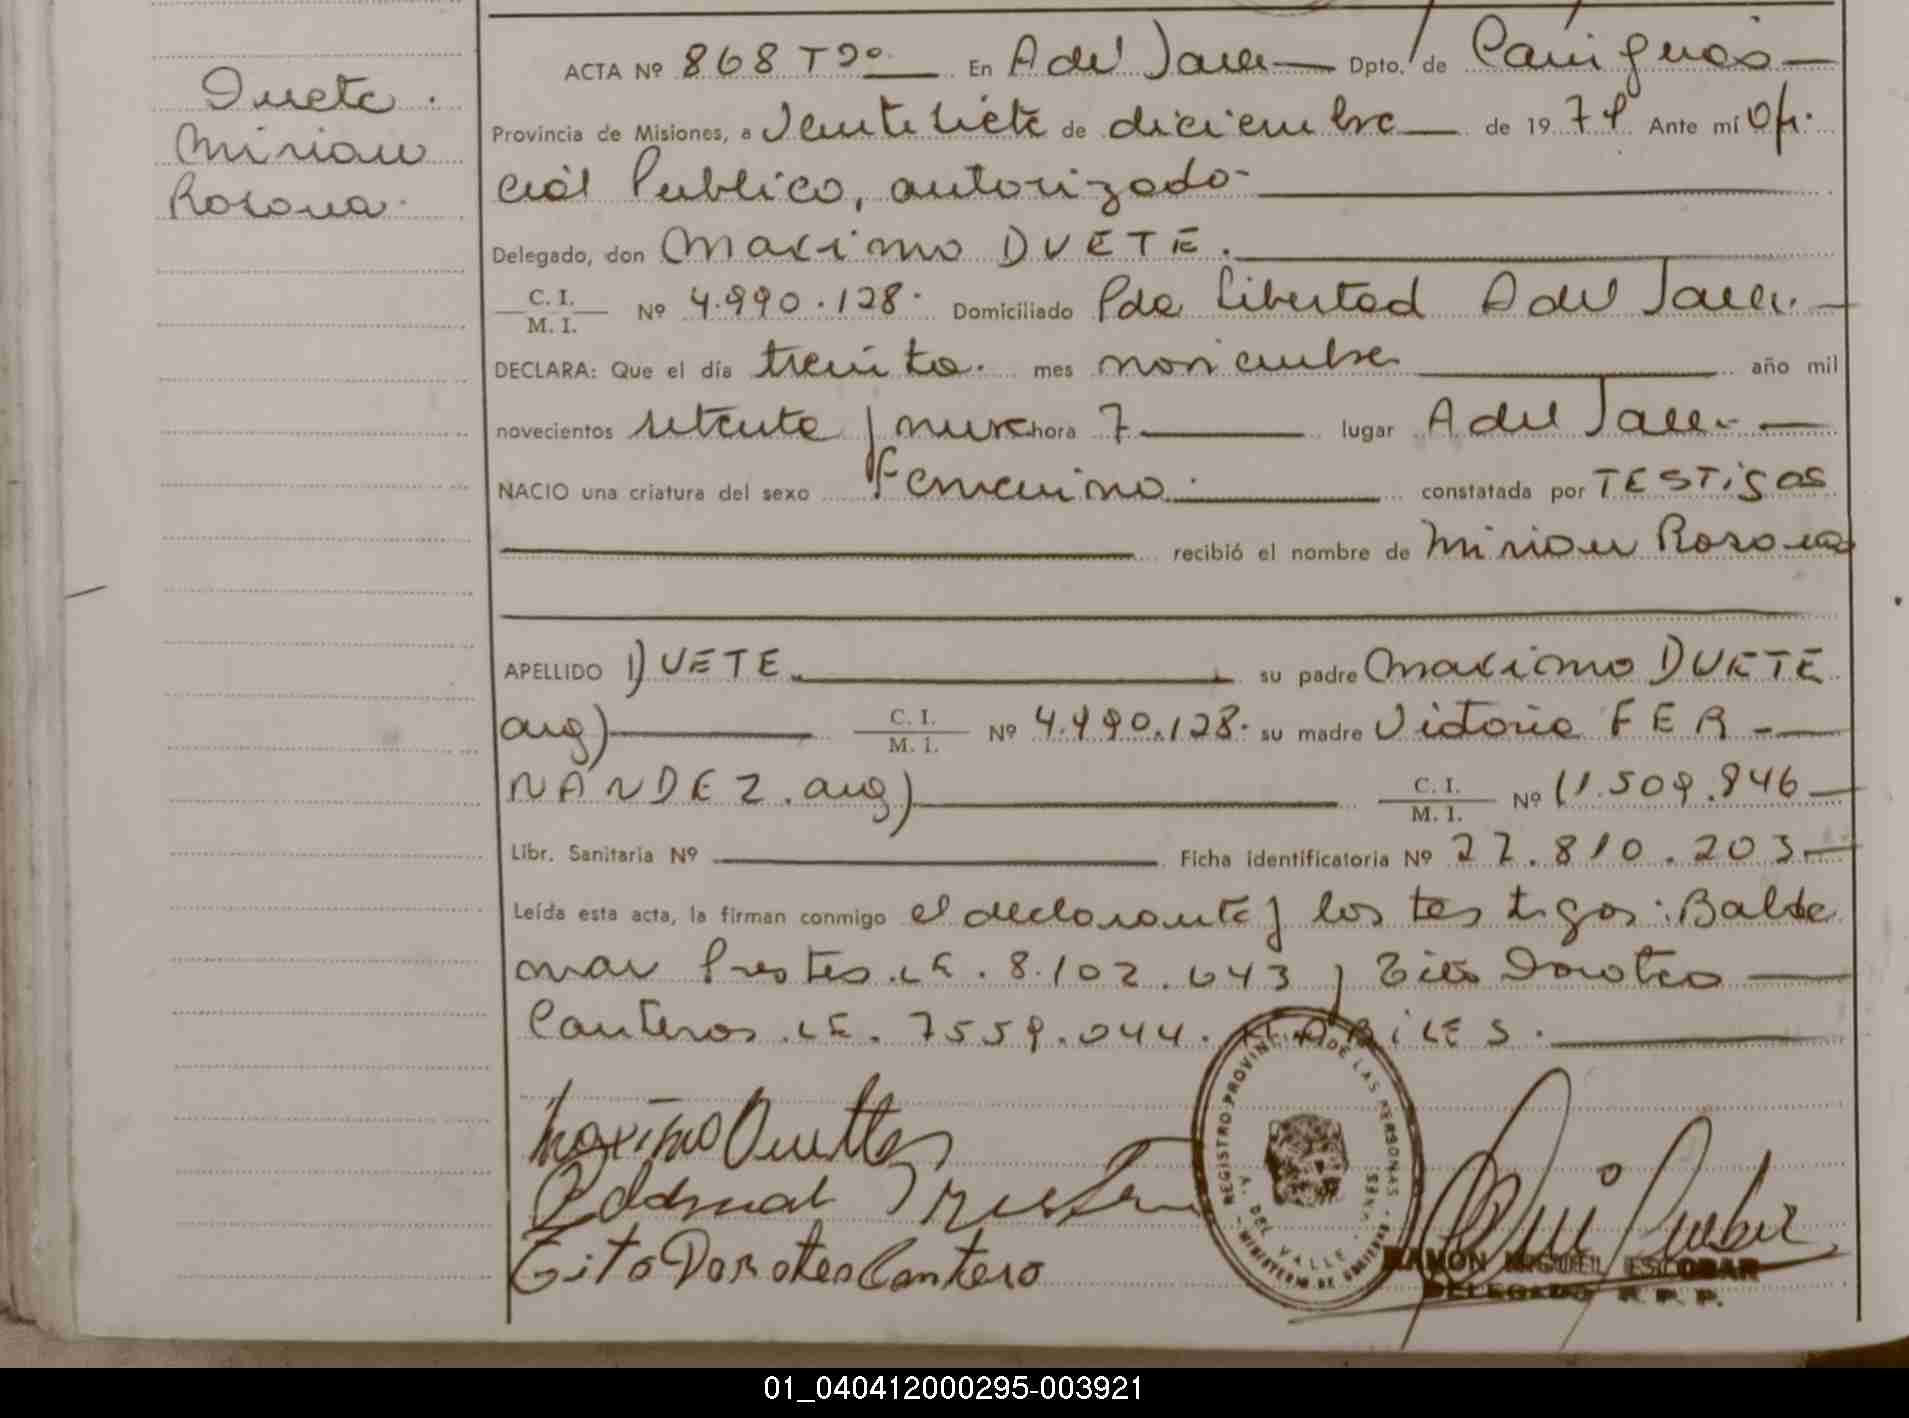 Duete.
Mirian
Rosana.
ACTA Nº 868 Tº 2º En A del Valle Dpto. de Cainguás
Provincia de Misiones, a veintisiete de diciembre de 1979 Ante mí Ofi-
cial Publico, autorizado-
Delegado, don Maximo DUETE.
C. I.
M. I. Nº 4.990.128. Domiciliado Pda Libertad A del Valle.
DECLARA: Que el día treinta. mes noviembre año mil
novecientos setenta y nueve hora 7 lugar A del Valle.
NACIO una criatura del sexo femenino. constatada por TESTIGOS
recibió el nombre de Mirian Rosana
APELLIDO DUETE su padre Maximo DUETE
arg) C. I.
M. I. Nº 4.990.128. su madre Victoria FER-
NANDEZ. arg) C. I.
M. I. Nº 11.509.846
Libr. Sanitaria Nº Ficha identificatoria Nº 27.810.203
Leída esta acta, la firman conmigo el declarante y los testigos: Balde
mar Prestes. LE. 8.102.043 y Tito Doroteo
Canteros. LE. 7559.044. HABILES.
Maximo
Tito Doroteo Cantero
REGISTRO PROVINCIAL DE LAS PERSONAS
A. DEL VALLE
MINISTERIO DE GOBIERNO
RAMON MIGUEL ESCOBAR
DELEGADO R. P. P.
01_040412000295-003921